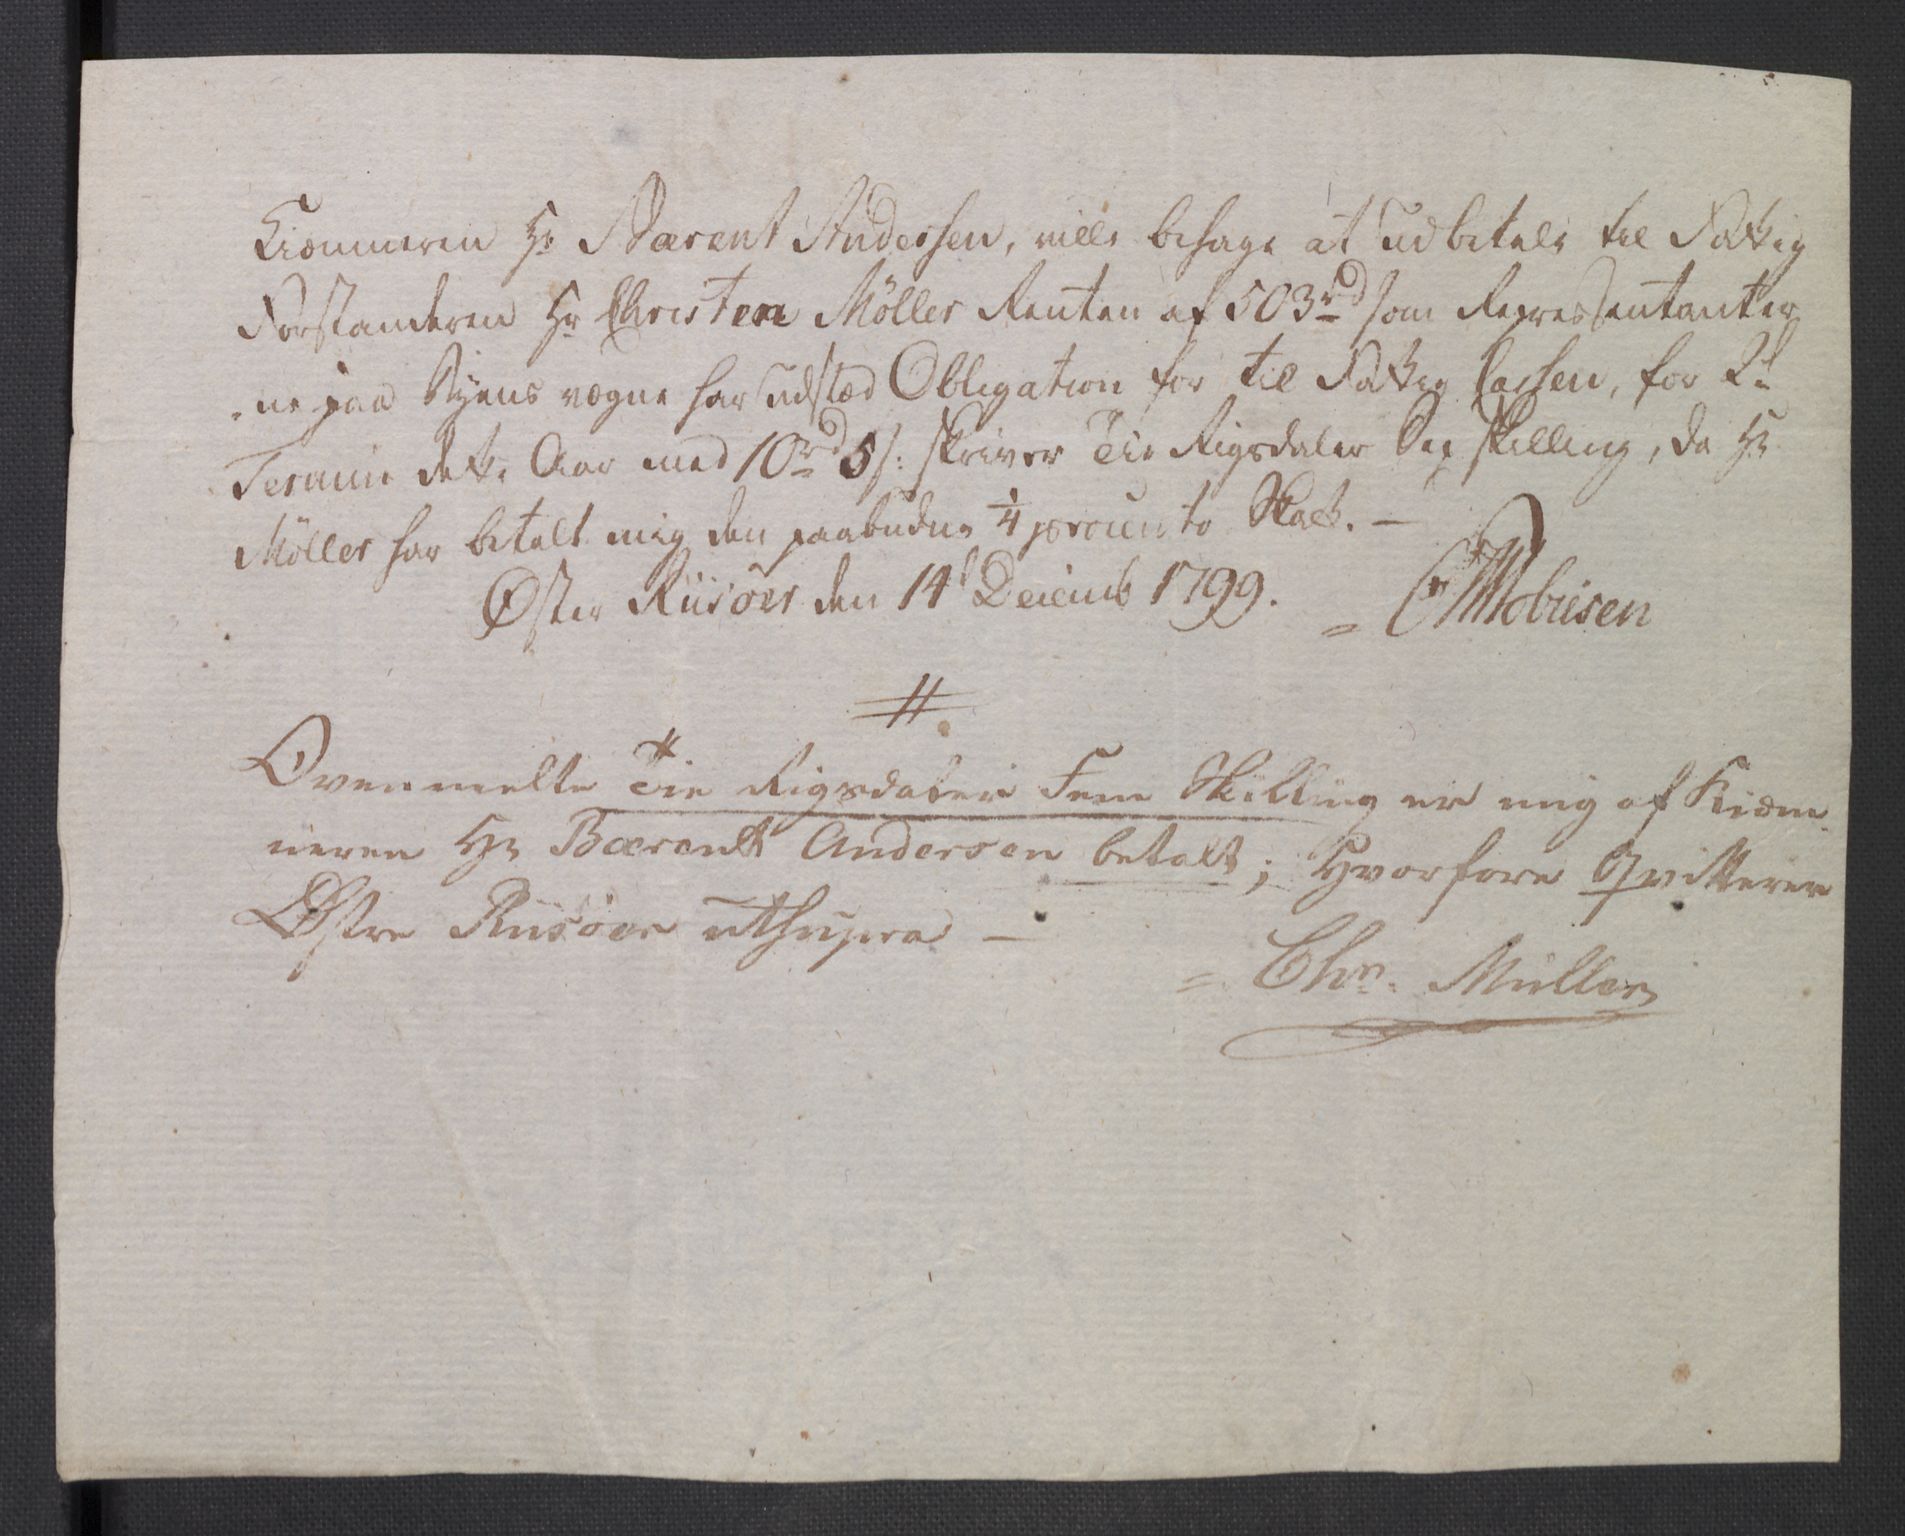 Kiæmmeren Hr Bærent Andersen, ville behage at udbetale til Fattig
Forstanderen Hr Christen Möller Renten af 503rd som Representanter
ne paa Byens vegne har udstæd Obligation for til Fattig Cassen, for 2de
Termin dette Aar med 10rd 5s: skriver Tie Rigsdaler Sex skilling, da Hr
Möller har betalt mig den paabudne 1/4 procento Skat. —
Øster Riisöer den 14d Decemb 1799.
Ovenmelte Tie Rigsdaler Fem Skilling er mig af Kiæm
neren Hr Bærent Andersen betalt; Hvorfore Qvitterer
Østre Riisöer utsupra —
= Chrn. Müller